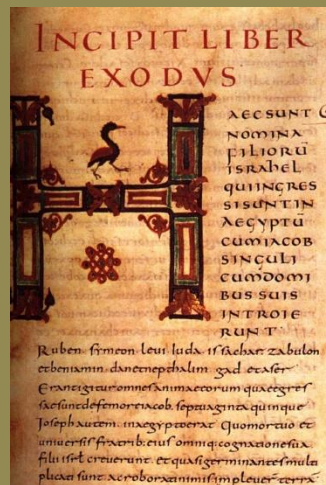 INCIPIT LIBER
EXODVS
HAEC SUNT
NOMINA
FILIORŪ
ISRAHEL
QUI INGRES
SI SUNT IN
AEGYPTŪ
CUM IACOB
SINGULI
CUM DOMI
BUS SUIS
INTROIE
RUNT
Ruben symeon leui iuda issachar zabulon
et beniamin dan et nepthalim gad et aser
Erant igitur omnes animae eorum quae egres
sae sunt de femore iacob septuaginta quinque
Ioseph autem in aegypto erat Quo mortuo et
uniuersis fratrib; eius omniq; cognatione sua
filii isrl creuerunt et quasi germinantes multi
plicati sunt ac roborati nimis impleuer terrā